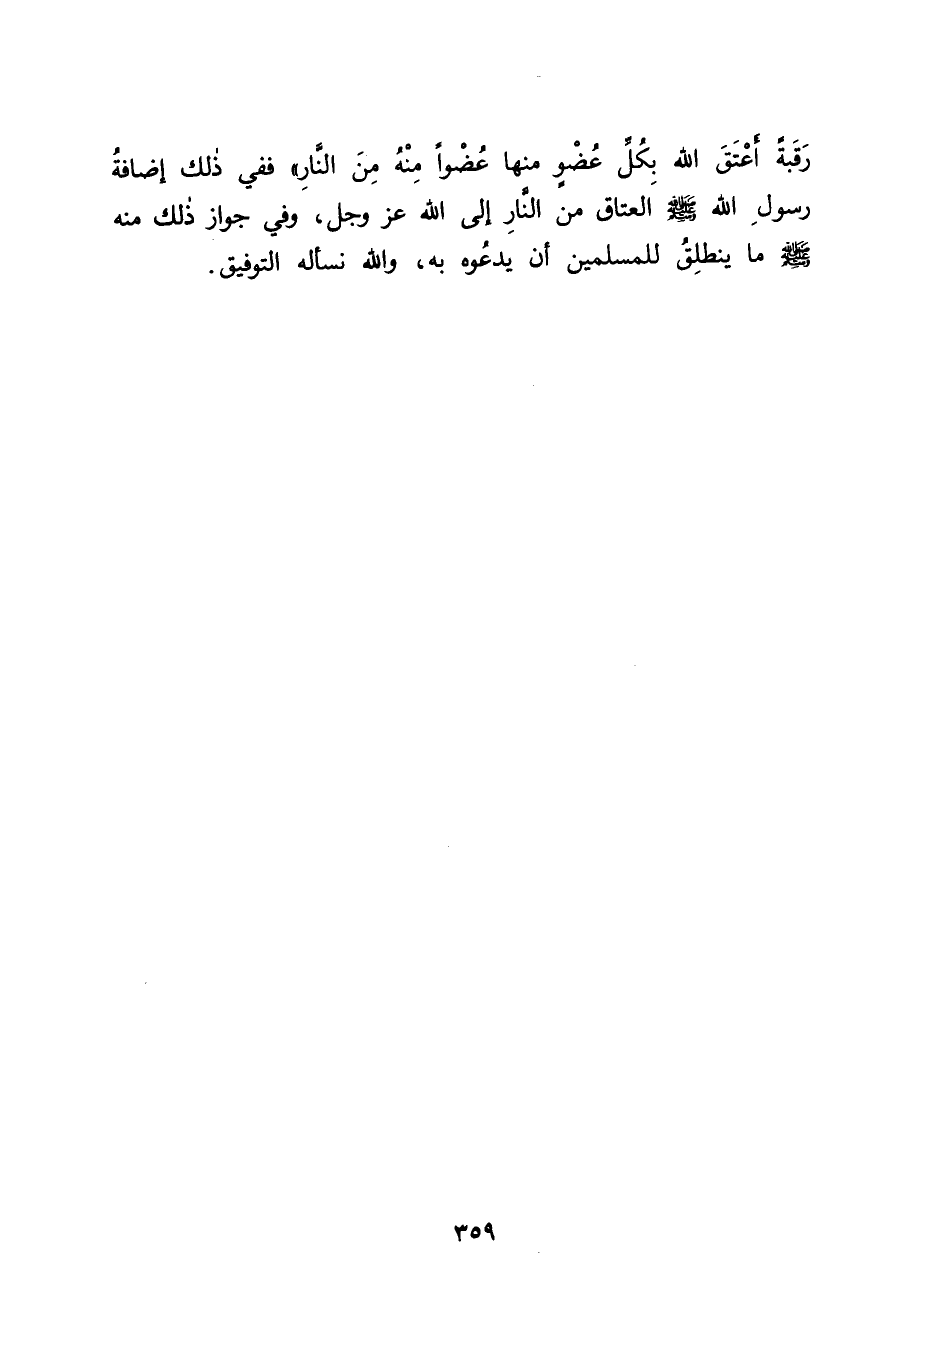 رَقَبَةً أَعْتَقَ الله بِكُلِّ عُضْوٍ منها عُضْواً مِنْهُ مِنَ النَّارِ» ففي ذٰلك إضافةُ
رسولِ الله ﷺ العتاق من النَّارِ إلى الله عز وجل، وفي جواز ذٰلك منه
ﷺ ما ينطلِقُ للمسلمين أن يدعُوه به، والله نسأله التوفيق.
٣٥٩